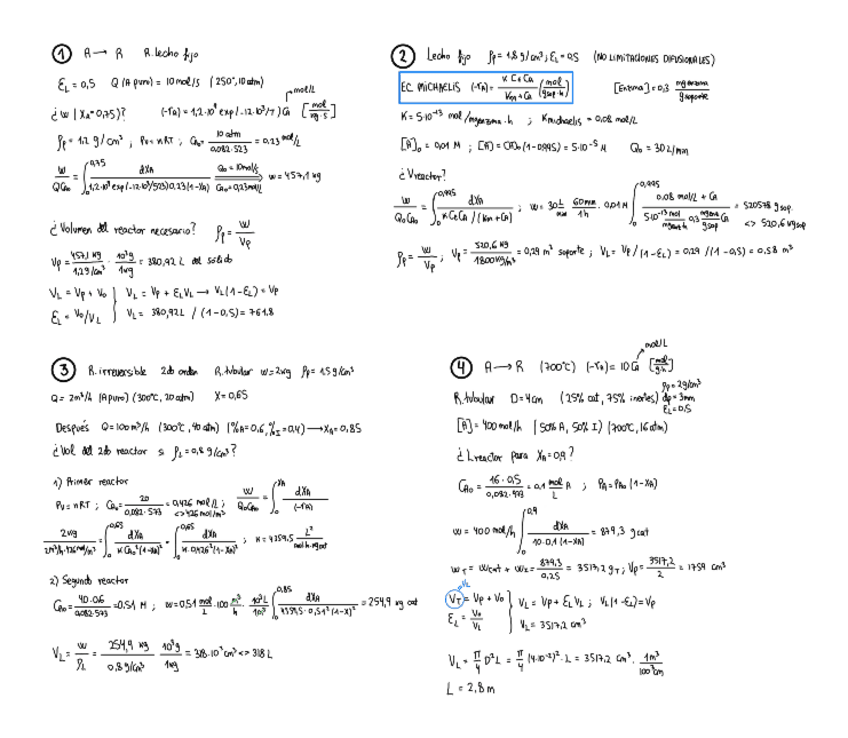 ① A → R R. Lecho fijo
ε_L = 0,5 Q (A puro) = 10 mol/s (250°, 10 atm)
mol/L
¿w | X_A = 0,75)? (-r_A) = 1,2·10⁹ exp(-12·10³/T) C_A [mol/kg·s]
ρ_p = 1,2 g/cm³ ; PV = nRT ; C_A0 = 10 atm / 0,082·523 = 0,23 mol/L
w/QC_A0 = ∫₀^0,75 dX_A / 1,2·10⁹ exp(-12·10³/523) 0,23 (1-X_A) Q_0 = 10 mol/s C_A0 = 0,23 mol/L ⟹ w = 457,1 kg
¿Volumen del reactor necesario? ρ_p = w/V_p
V_p = 457,1 kg / 1,2 g/cm³ · 10³g/1kg = 380,92 L del solido
V_L = V_p + V_o } V_L = V_p + ε_L V_L → V_L (1-ε_L) = V_p
ε_L = V_o/V_L } V_L = 380,92 L / (1-0,5) = 761.8
② Lecho fijo ρ_p = 1.8 g/cm³ ; ε_L = 0,5 (NO LIMITACIONES DIFUSIONALES)
EC. MICHAELIS (-r_A) = K C_E C_A / K_m + C_A (mol/gsop·h) [Enzima] = 0,3 mg enzima / g soporte
K = 5·10⁻¹³ mol/mgenzima·h ; K michaelis = 0,08 mol/L
[A]₀ = 0,01 M ; [A] = [A]₀ (1-0,995) = 5·10⁻⁵ M Q_0 = 30 L/min
¿Vreactor?
w/Q_0C_A0 = ∫₀^0,995 dX_A / K C_E C_A / (K_m + C_A) ; w = 30 L/min · 60 min/1h · 0,01 M ∫₀^0,995 0,08 mol/L + C_A / 5·10⁻¹³ mol/mgenz·h 0,3 mgenz/gsop C_A = 520578 g sop.
<> 520,6 kg sop
ρ_p = w/V_p ; V_p = 520,6 kg / 1800 kg/m³ = 0,29 m³ soporte ; V_L = V_p/(1-ε_L) = 0,29 / (1-0,5) = 0,58 m³
③ R. irreversible 2do orden R. tubular w = 2 kg ρ_p = 1.5 g/cm³
Q = 2 m³/h (A puro) (300°C, 20 atm) X = 0,65
Después Q = 100 m³/h (300°C, 40 atm) (%A = 0.6, %I = 0,4) → X_A = 0,85
¿Vol del 2do reactor si ρ_L = 0,8 g/cm³?
1) Primer reactor
PV = nRT ; C_A0 = 20 / 0,082·573 = 0,426 mol/L <> 426 mol/m³ ; w/Q_0C_A0 = ∫₀^X_A dX_A / (-r_A)
2 kg / 2 m³/h·426 mol/m³ = ∫₀^0,65 dX_A / K C_A0² (1-X_A)² = ∫₀^0,65 dX_A / K·0,426² (1-X_A)² ; K = 4359.5 L² / mol·h·kgcat
2) Segundo reactor
C_A0 = 40·0.6 / 0,082·573 = 0,51 M ; w = 0,51 mol/L · 100 m³/h · 10³L/1m³ ∫₀^0,85 dX_A / 4359,5·0,51² (1-X)² = 254,9 kg cat
V_L = w/ρ_L = 254,9 kg / 0,8 g/cm³ · 10³g/1kg = 318·10³ cm³ <> 318 L
④ A → R (700°C) (-r_A) = 10 C_A [mol/g·h]
mol/L
R. tubular D = 4 cm (25% cat, 75% inertes) ρ_p = 2 g/cm³ dp = 3 mm ε_L = 0,5
[A] = 400 mol/h (50% A, 50% I) (700°C, 16 atm)
¿L reactor para X_A = 0,9?
C_A0 = 16·0,5 / 0,082·973 = 0,1 mol/L A ; P_A = P_A0 (1-X_A)
w = 400 mol/h ∫₀^0,9 dX_A / 10·0.1 (1-X_A) = 879,3 g cat
w_T = w_cat + w_I = 879,3 / 0,25 = 3517,2 g_T ; V_p = 3517,2 / 2 = 1759 cm³
V_L
V_T = V_p + V_o } V_L = V_p + ε_L V_L ; V_L (1-ε_L) = V_p
ε_L = V_o/V_L } V_L = 3517,2 cm³
V_L = π/4 D² L = π/4 (4·10⁻²)²·L = 3517,2 cm³ · 1 m³ / 100³ cm
L = 2,8 m